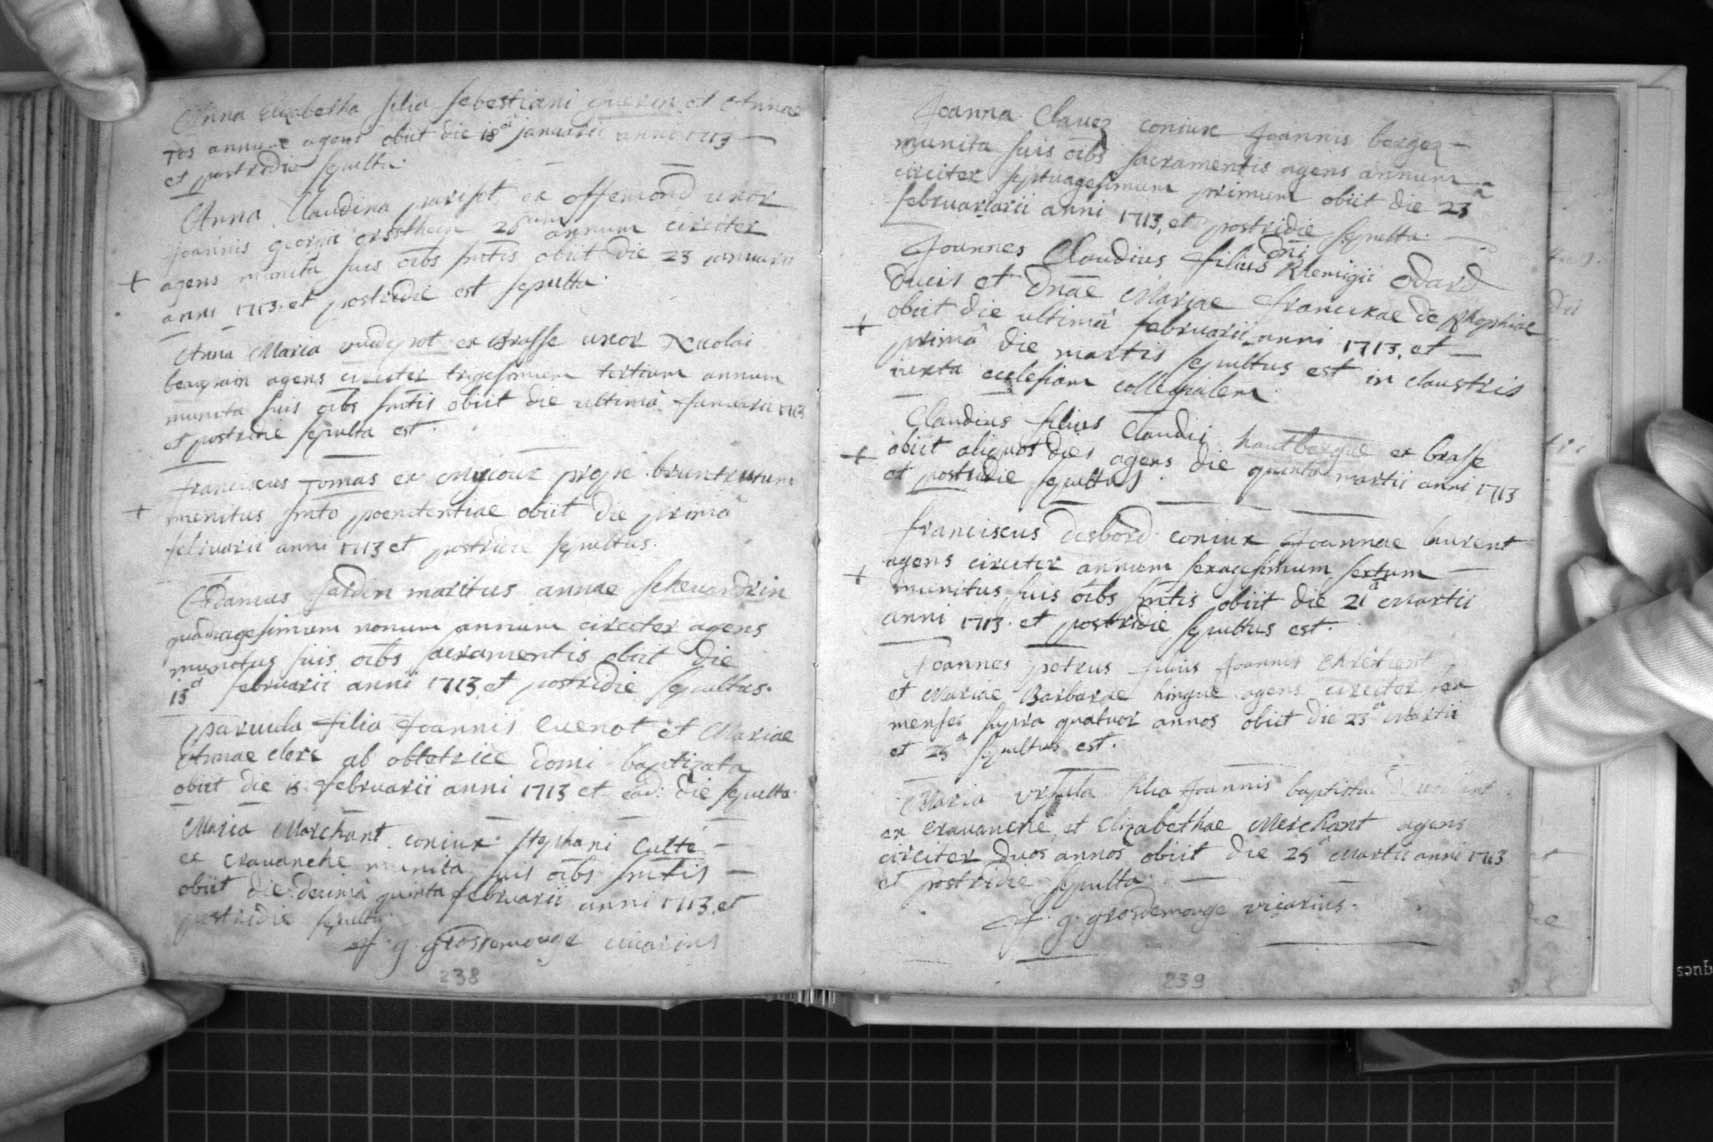 Anna Elizabetha filia Sebastiani Guerin et Annae
ros annum agens obiit die 18a januarii anni 1713
et postridie sepulta.
Anna Claudina parisot ex offemond uxor
Joannis georgii 26um annum circiter
agens munita suis oibs smtis obiit die 23 januarii
anni 1713. et postridie est sepulta.
Anna Maria ex Brasse uxor Nicolai
beaupain agens circiter trigesimum tertium annum
munita suis oibs smtis obiit die ultima januarii 1713
et postridie sepulta est.
franciscus Tomas ex prope bruntrutum
munitus smto poenitentiae obiit die prima
februarii anni 1713 et postridie sepultus.
Adamus jardin maritus annae scheuardrin
quadragesimum nonum annum circiter agens
munitus suis oibs sacramentis obiit die
13a februarii anni 1713 et postridie sepultus.
parvula filia Joannis Cuenot et Mariae
Annae clere ab obtetrice domi baptizata
obiit die 15 februarii anni 1713 et ead: die sepulta.
Maria Marchant coniux Stephani Culté
ex cravanche munita suis oibs smtis
obiit die decima quinta februarii anni 1713. et
postridie sepulta.
f. g. grosdemouge vicarius
238
Joanna Clavez coniux Joannis berger
munita suis oibs sacramentis agens annum
circiter septuagesimum primum obiit die 23a
februariarii anni 1713, et postridie sepulta.
Joannes Claudius filius dni Remigii Odard
ducis et Dnae Mariae franciscae de
obiit die ultimâ februarii anni 1713. et
primâ die martis sepultus est in claustris
iuxta ecclesiam collegialem
Claudius filius Claudii hautbergue ex brasse
obiit aliquot dies agens die quinta martii anni 1713
et postridie sepultus.
franciscus desbord coniux Joannae laurent
agens circiter annum sexagesimum sextum
munitus suis oibs smtis obiit die 21a Martii
anni 1713. et postridie sepultus est.
Joannes petrus filius Joannis
et Mariae Barbarae hingue agens circiter sex
menses supra quatuor annos obiit die 23a Martii
et 25a sepultus est.
Maria Ursula filia Joannis baptistae
ex cravanche et Elizabethae Merchant agens
circiter duos annos obiit die 25a Martii anni 1713
et postridie sepulta
f. g. grosdemouge vicarius.
239